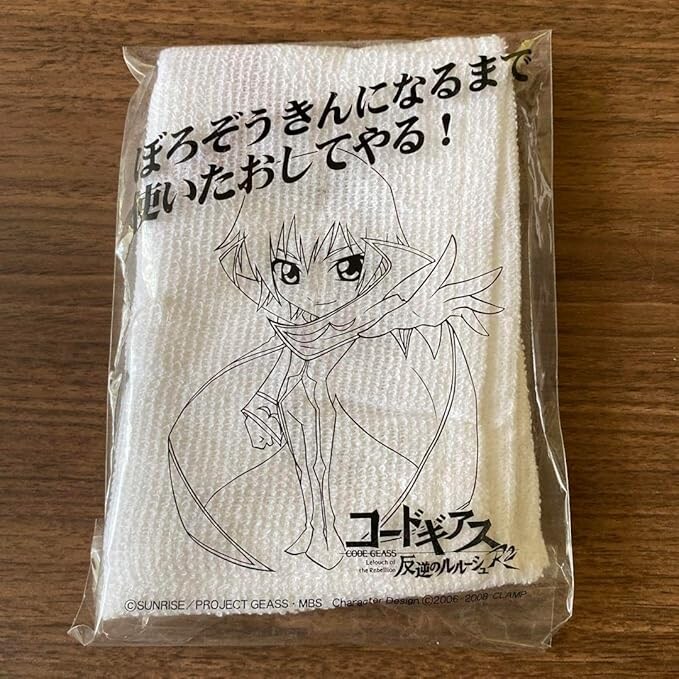 ぼろぞうきんになるまで
使いたおしてやる！
コードギアス
CODE GEASS
Lelouch of
the Rebellion
反逆のルルーシュ R2
©SUNRISE／PROJECT GEASS・MBS Character Design ©2006-2008 CLAMP